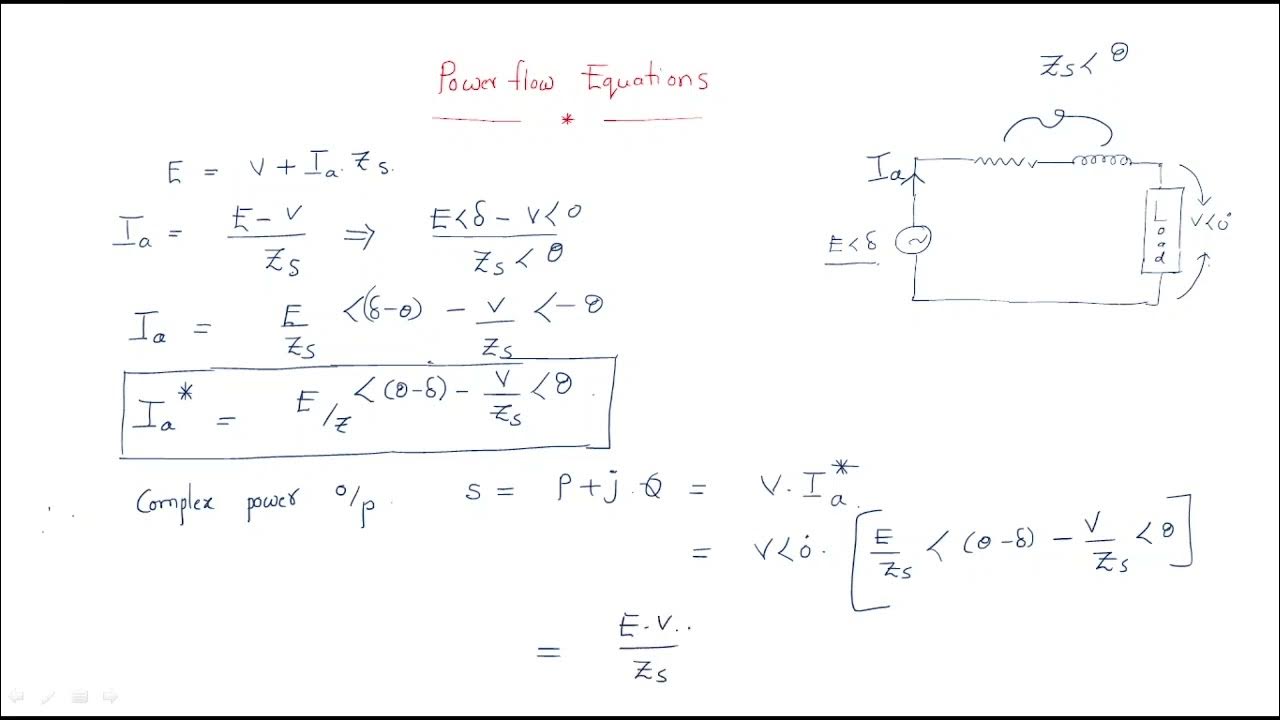 Power flow Equations
*
E = V + Ia. Zs.
Ia = E - V / Zs ⇒ E<δ - V<0 / Zs < θ
Ia = E / Zs <(δ-θ) - V / Zs <-θ
Ia* = E/Z <(θ-δ) - V / Zs <θ.
Complex power o/p. S = P + j.Q = V. Ia*.
= V<0°. [E / Zs < (θ-δ) - V / Zs <θ]
= E.V.. / Zs
Zs< θ
Ia
E<δ
Load
V<0°